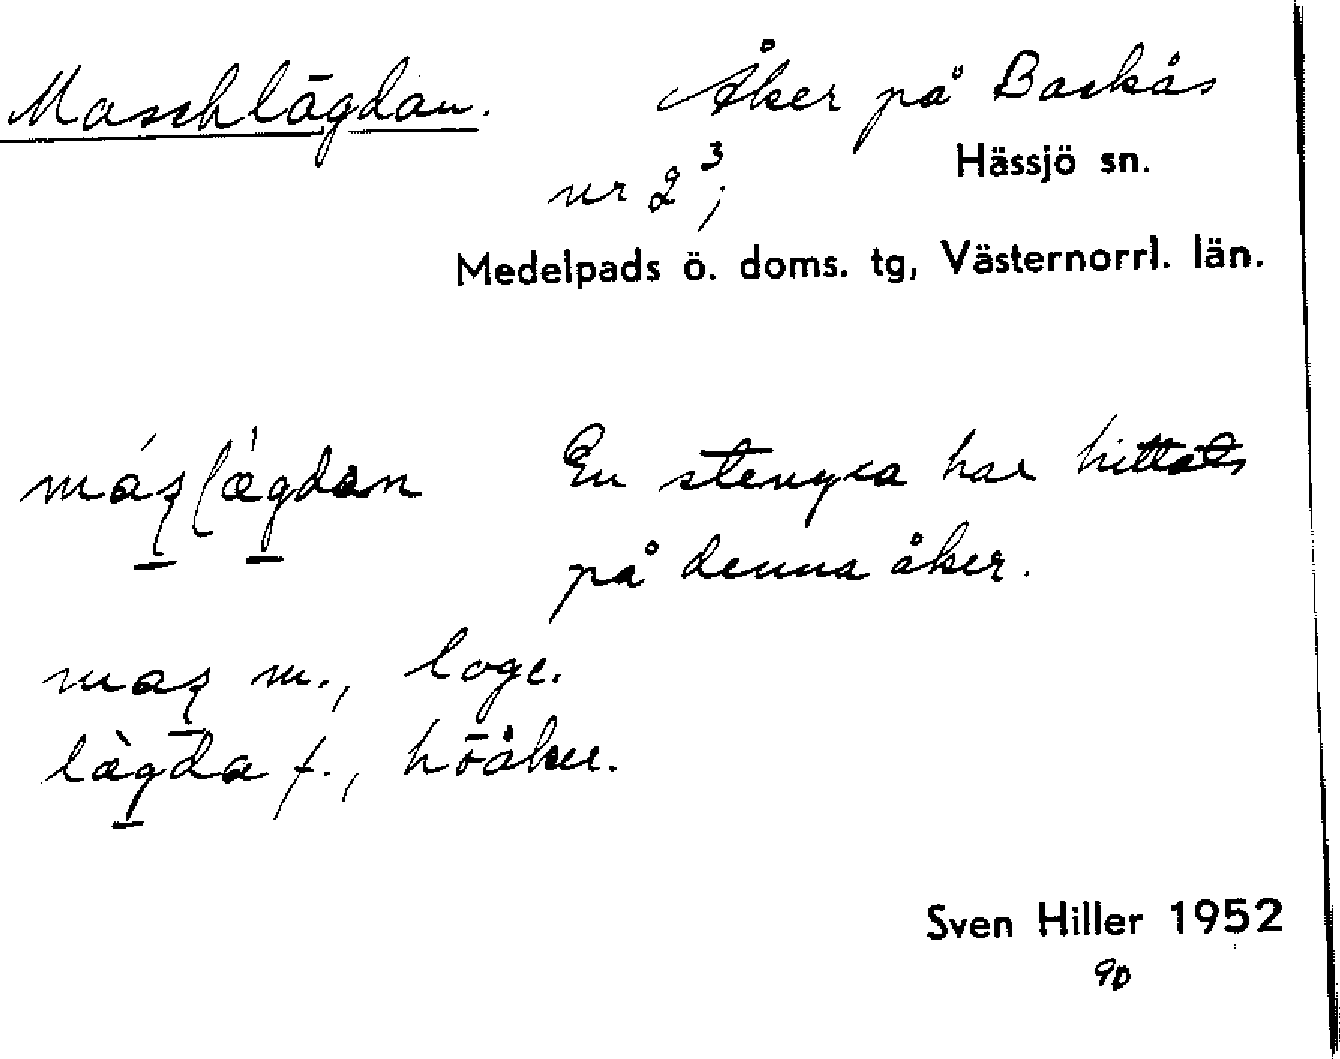 Maschlägdan. Åker på Backås
nr 2³; Hässjö sn.
Medelpads ö. doms. tg, Västernorrl. län.
En stenyxa har hittats
på denna åker.
m., loge.
lägda f., höåker.
Sven Hiller 1952
90